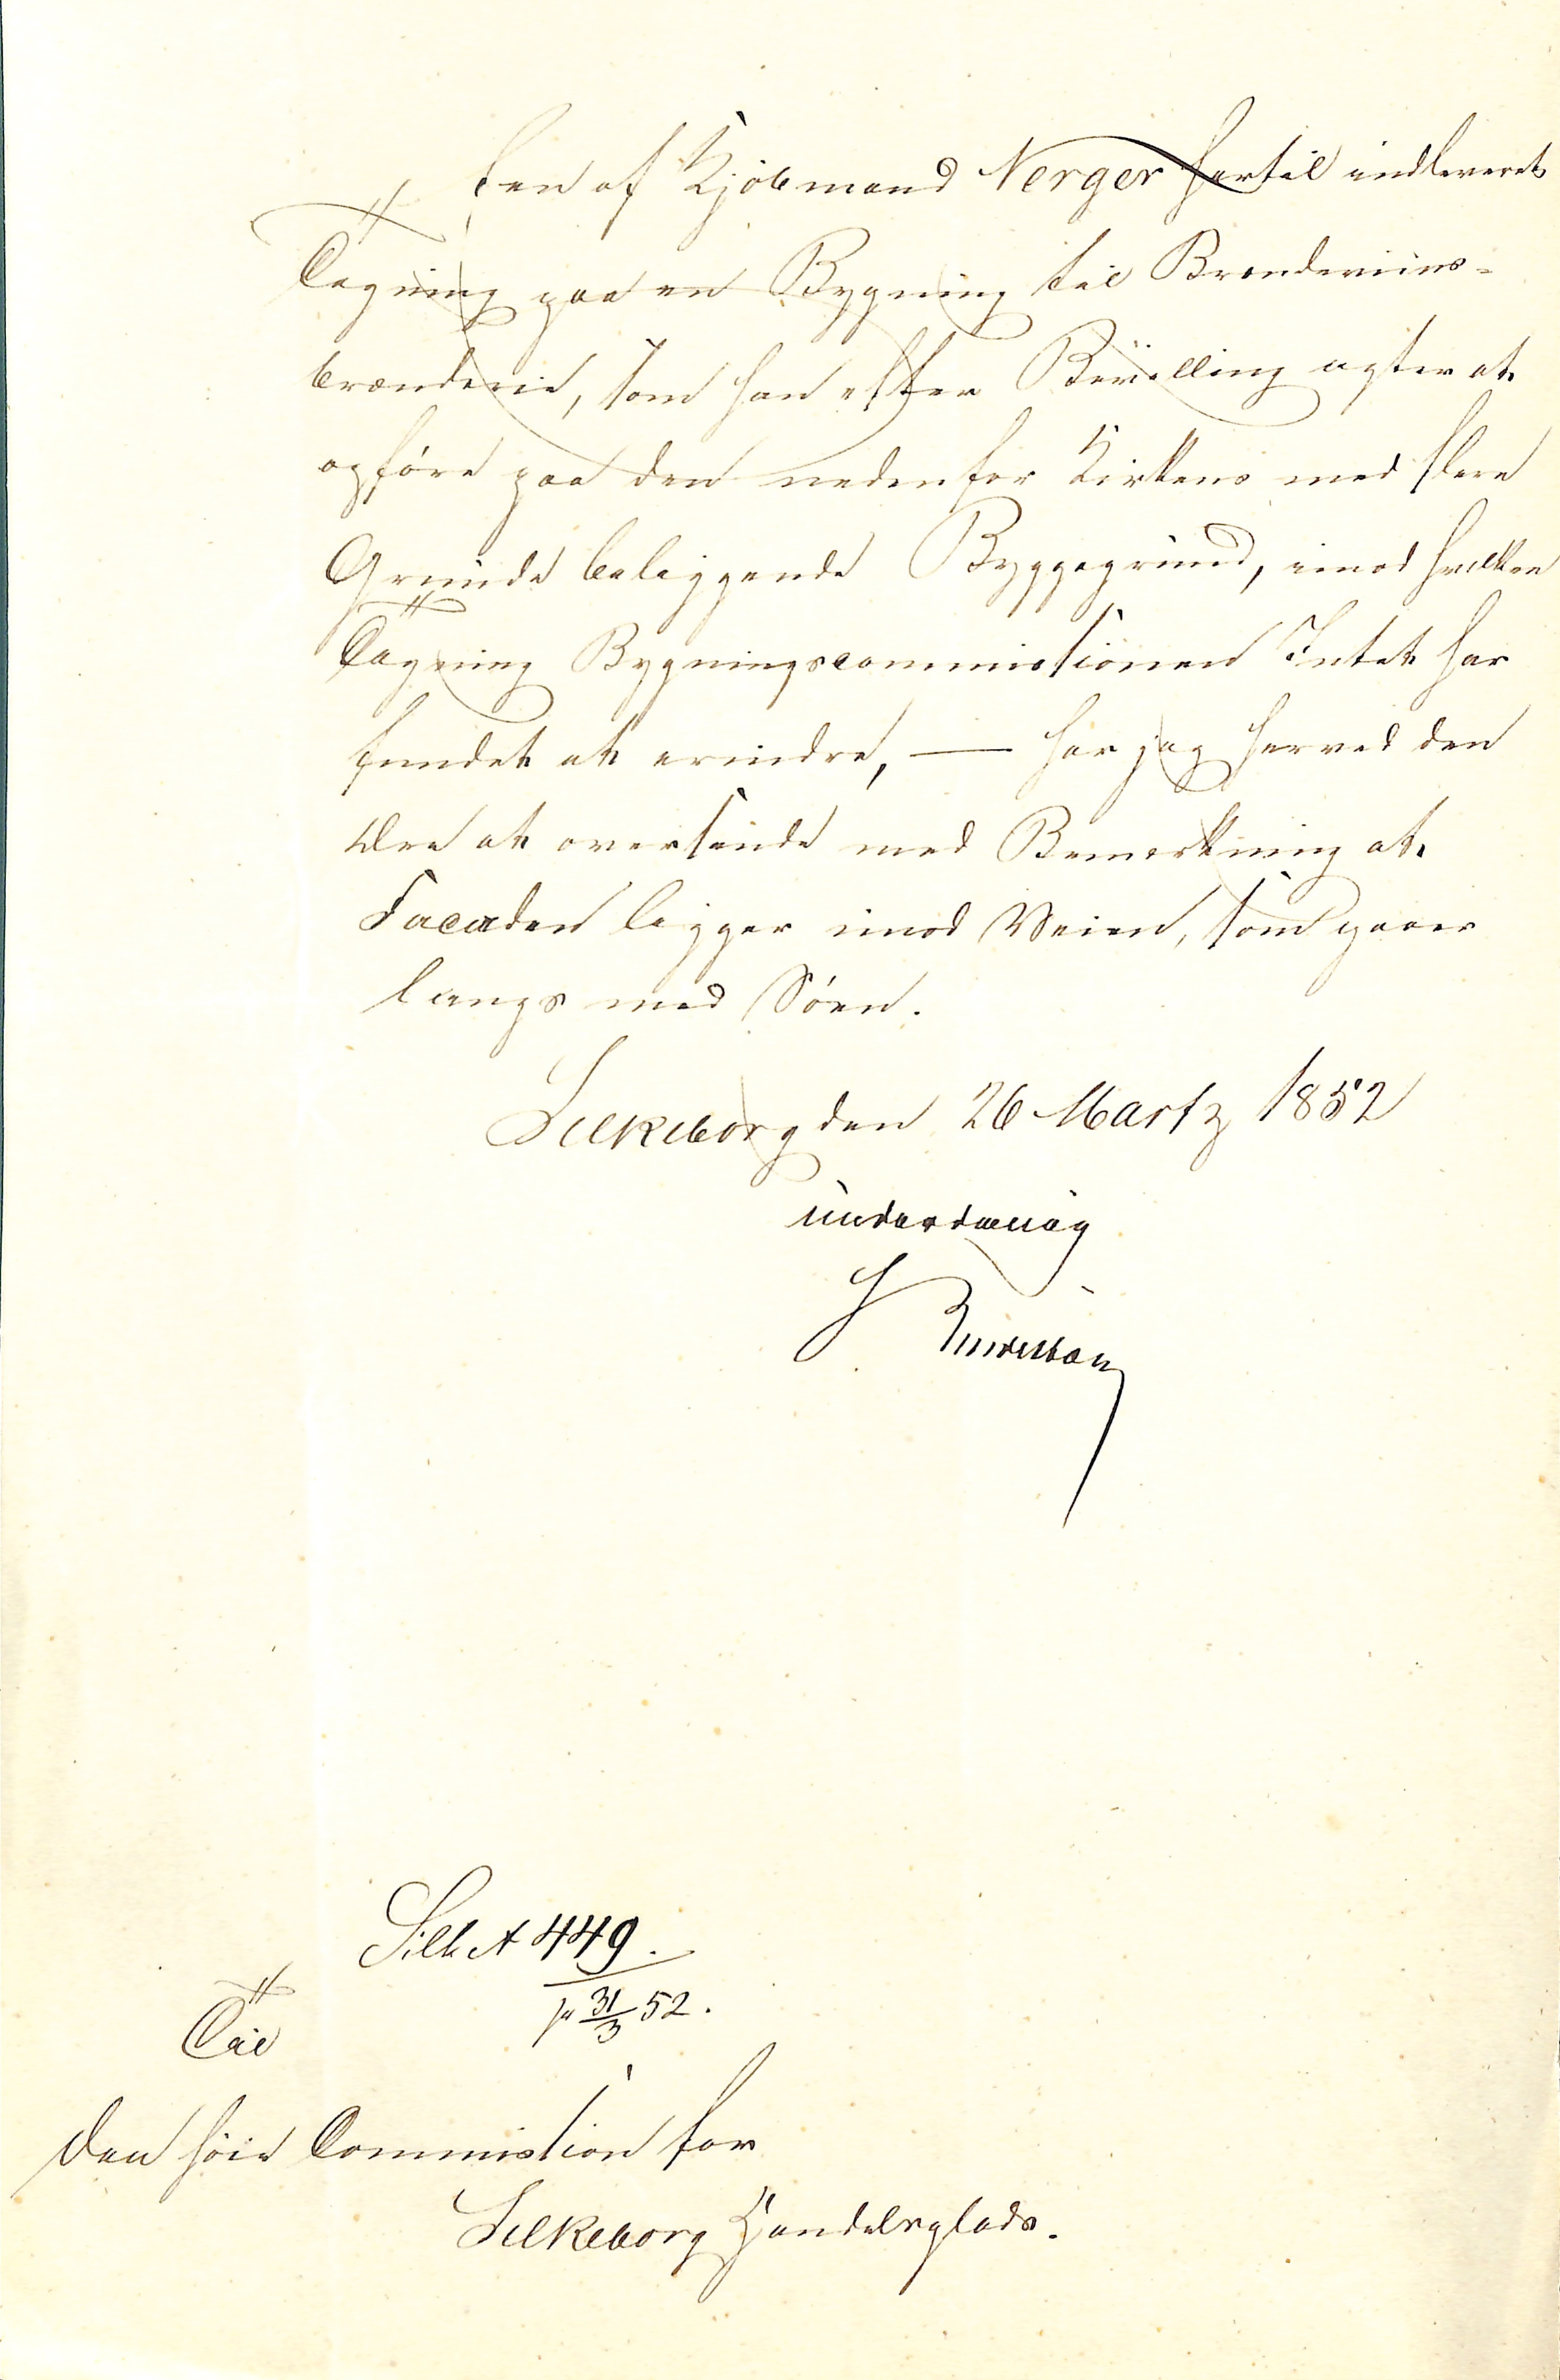 Den af Kjöbmand Nerger hertil indleverete
Tegning paa en Bygning til Brændeviins-
brænderie, som han efter Bevilling agter at
opföre paa den nedenfor Kirkens med flere
Grunde beliggende Byggegrund, imod hvilken
Tegning Bygningscommissionen Intet har
fundet at erindre, — har jeg herved den
Ære at oversende med Bemærkning at
Facaden ligger imod Veien, som gaaer
langs med Söen.
Silkeborg den 26 Martz 1852
underdanig
Silk A 449.
pr 31/3 52.
Til
den höie Commission for
Silkeborg Handelsplads.